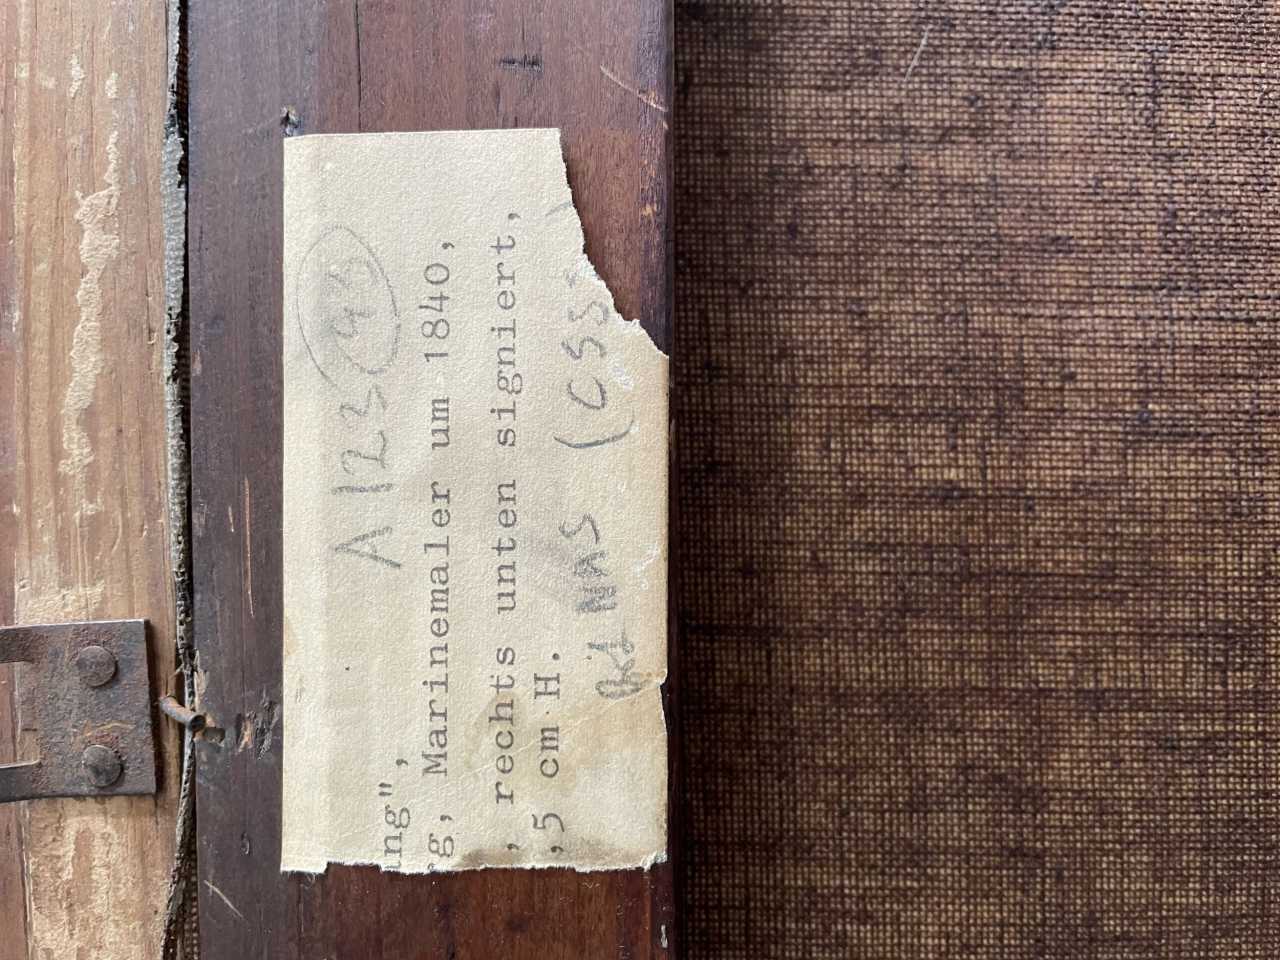 A 123 43
ng",
g, Marinemaler um 1840,
, rechts unten signiert,
,5 cm H.
(CSS